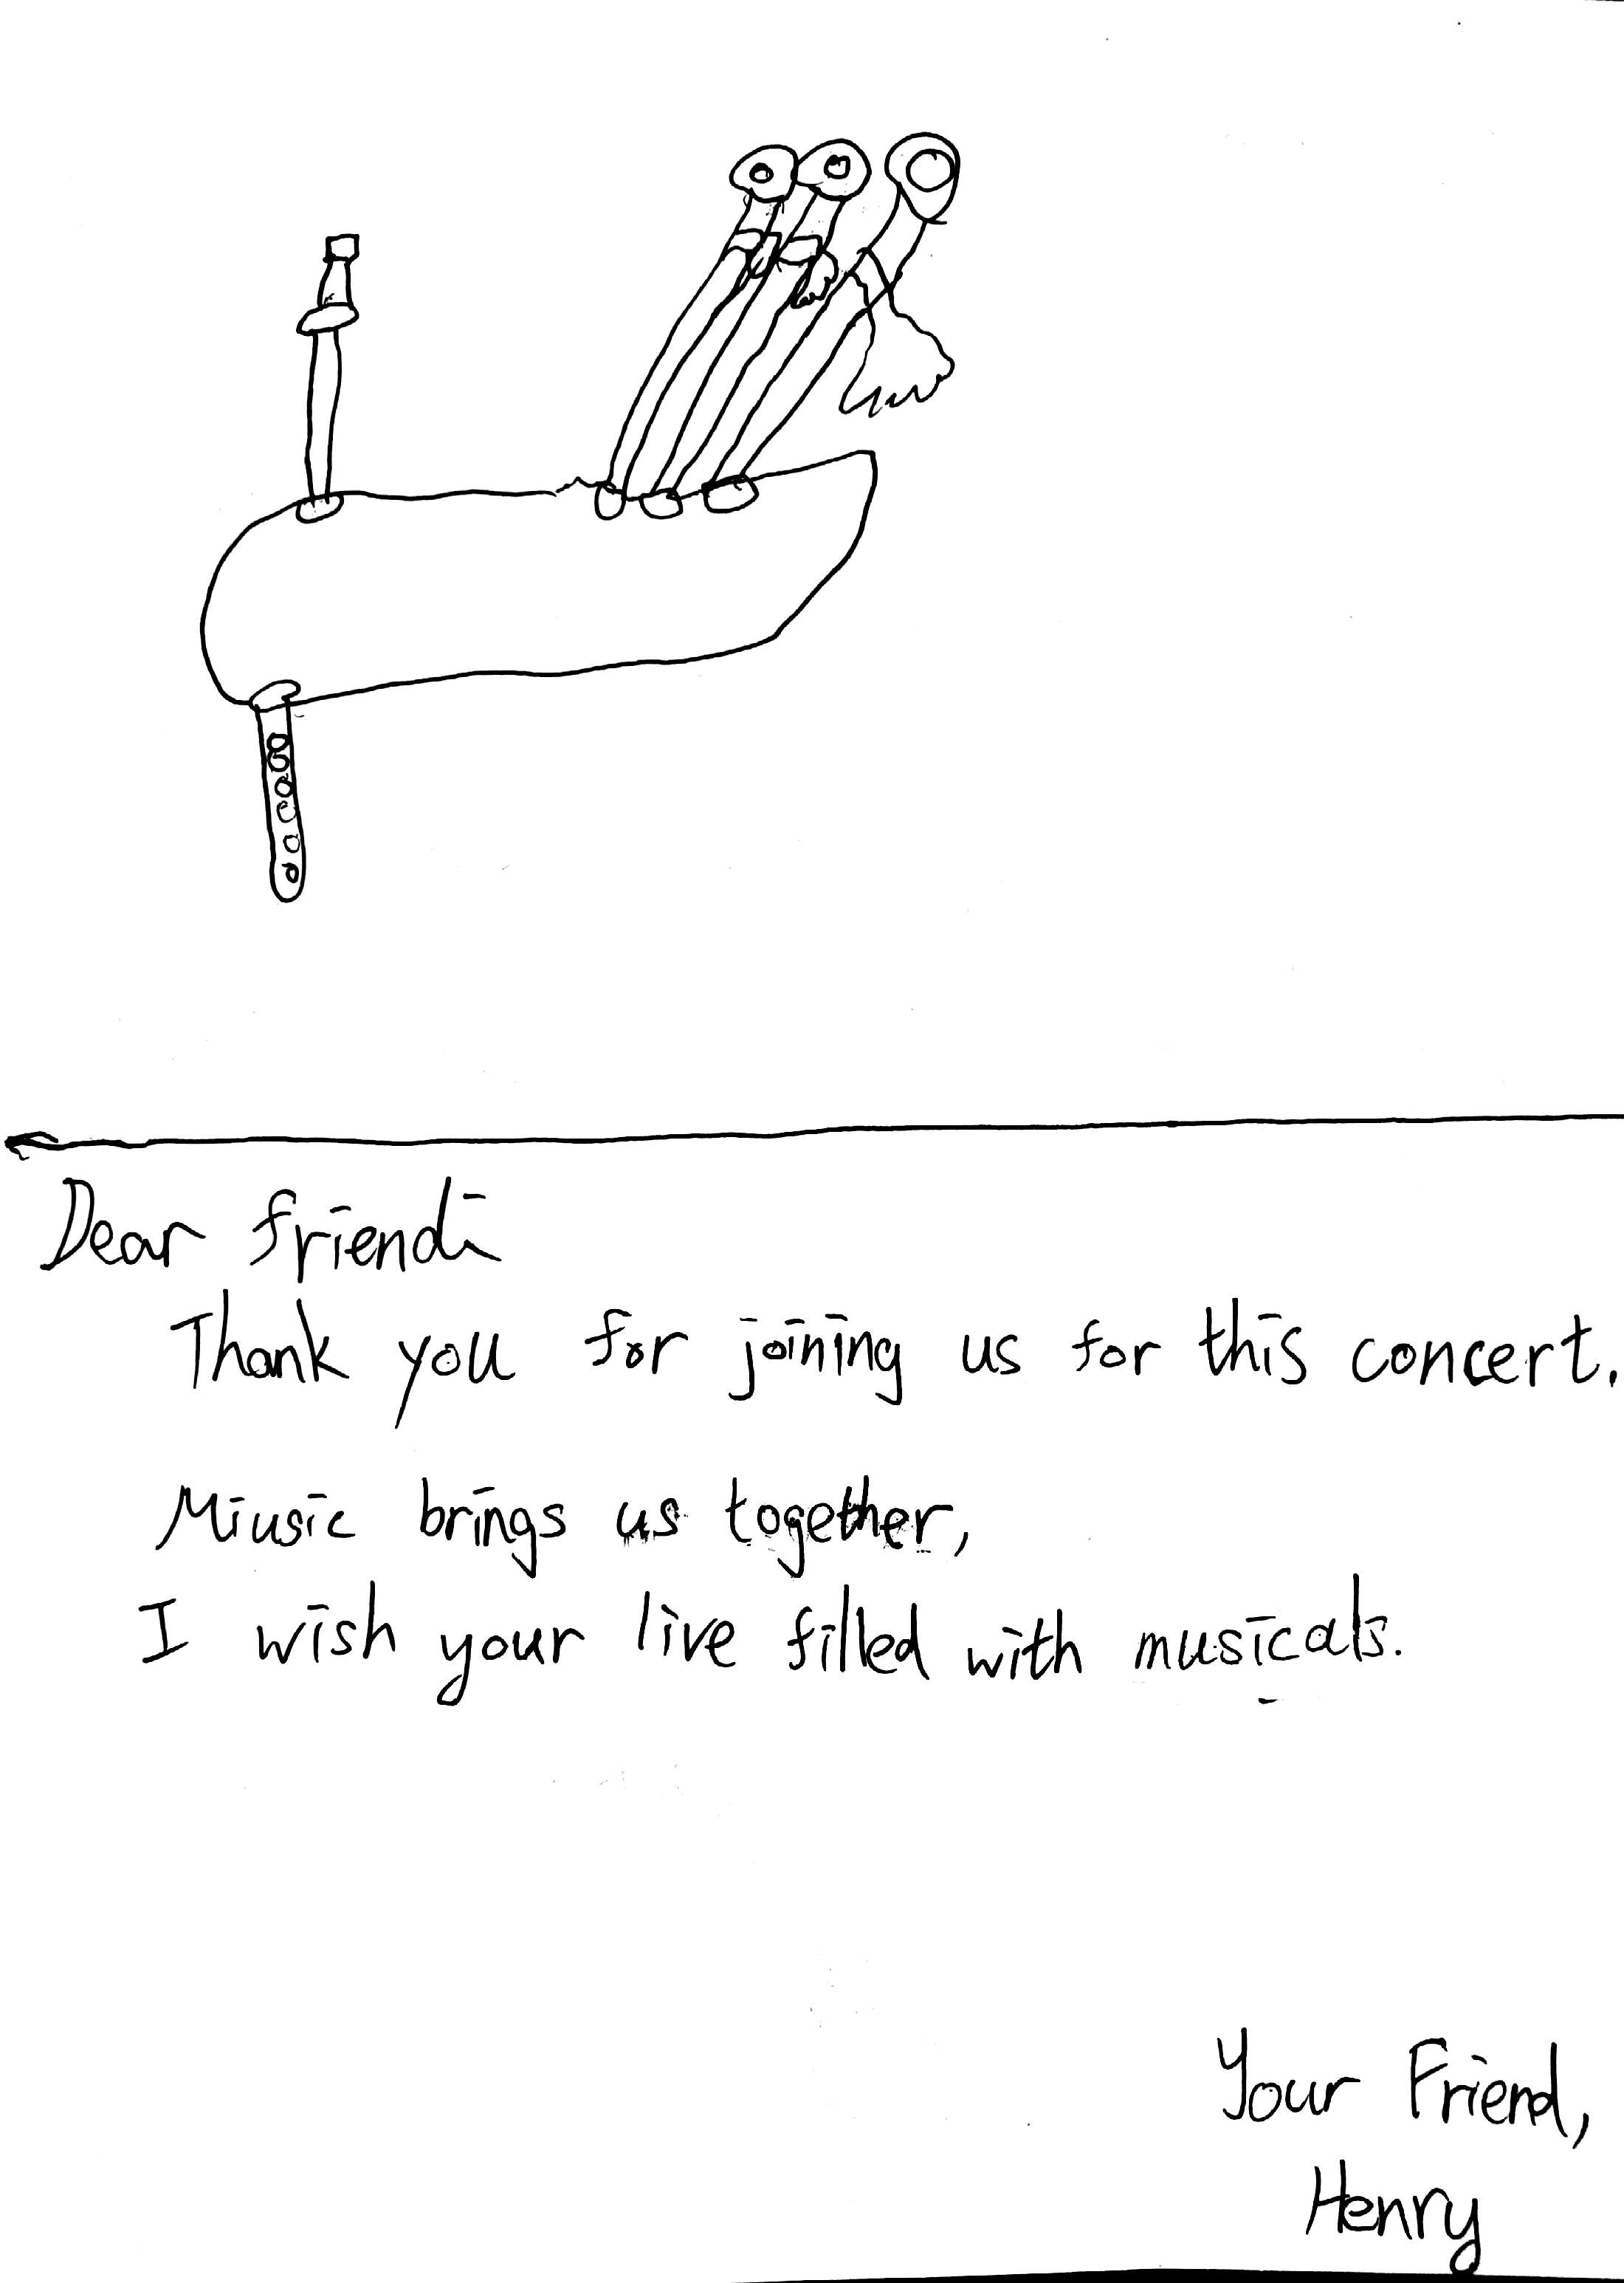 Dear friend:
Thank you for joining us for this concert.
Miusic brings us together,
I wish your live filled with musicals.
Your Friend,
Henry